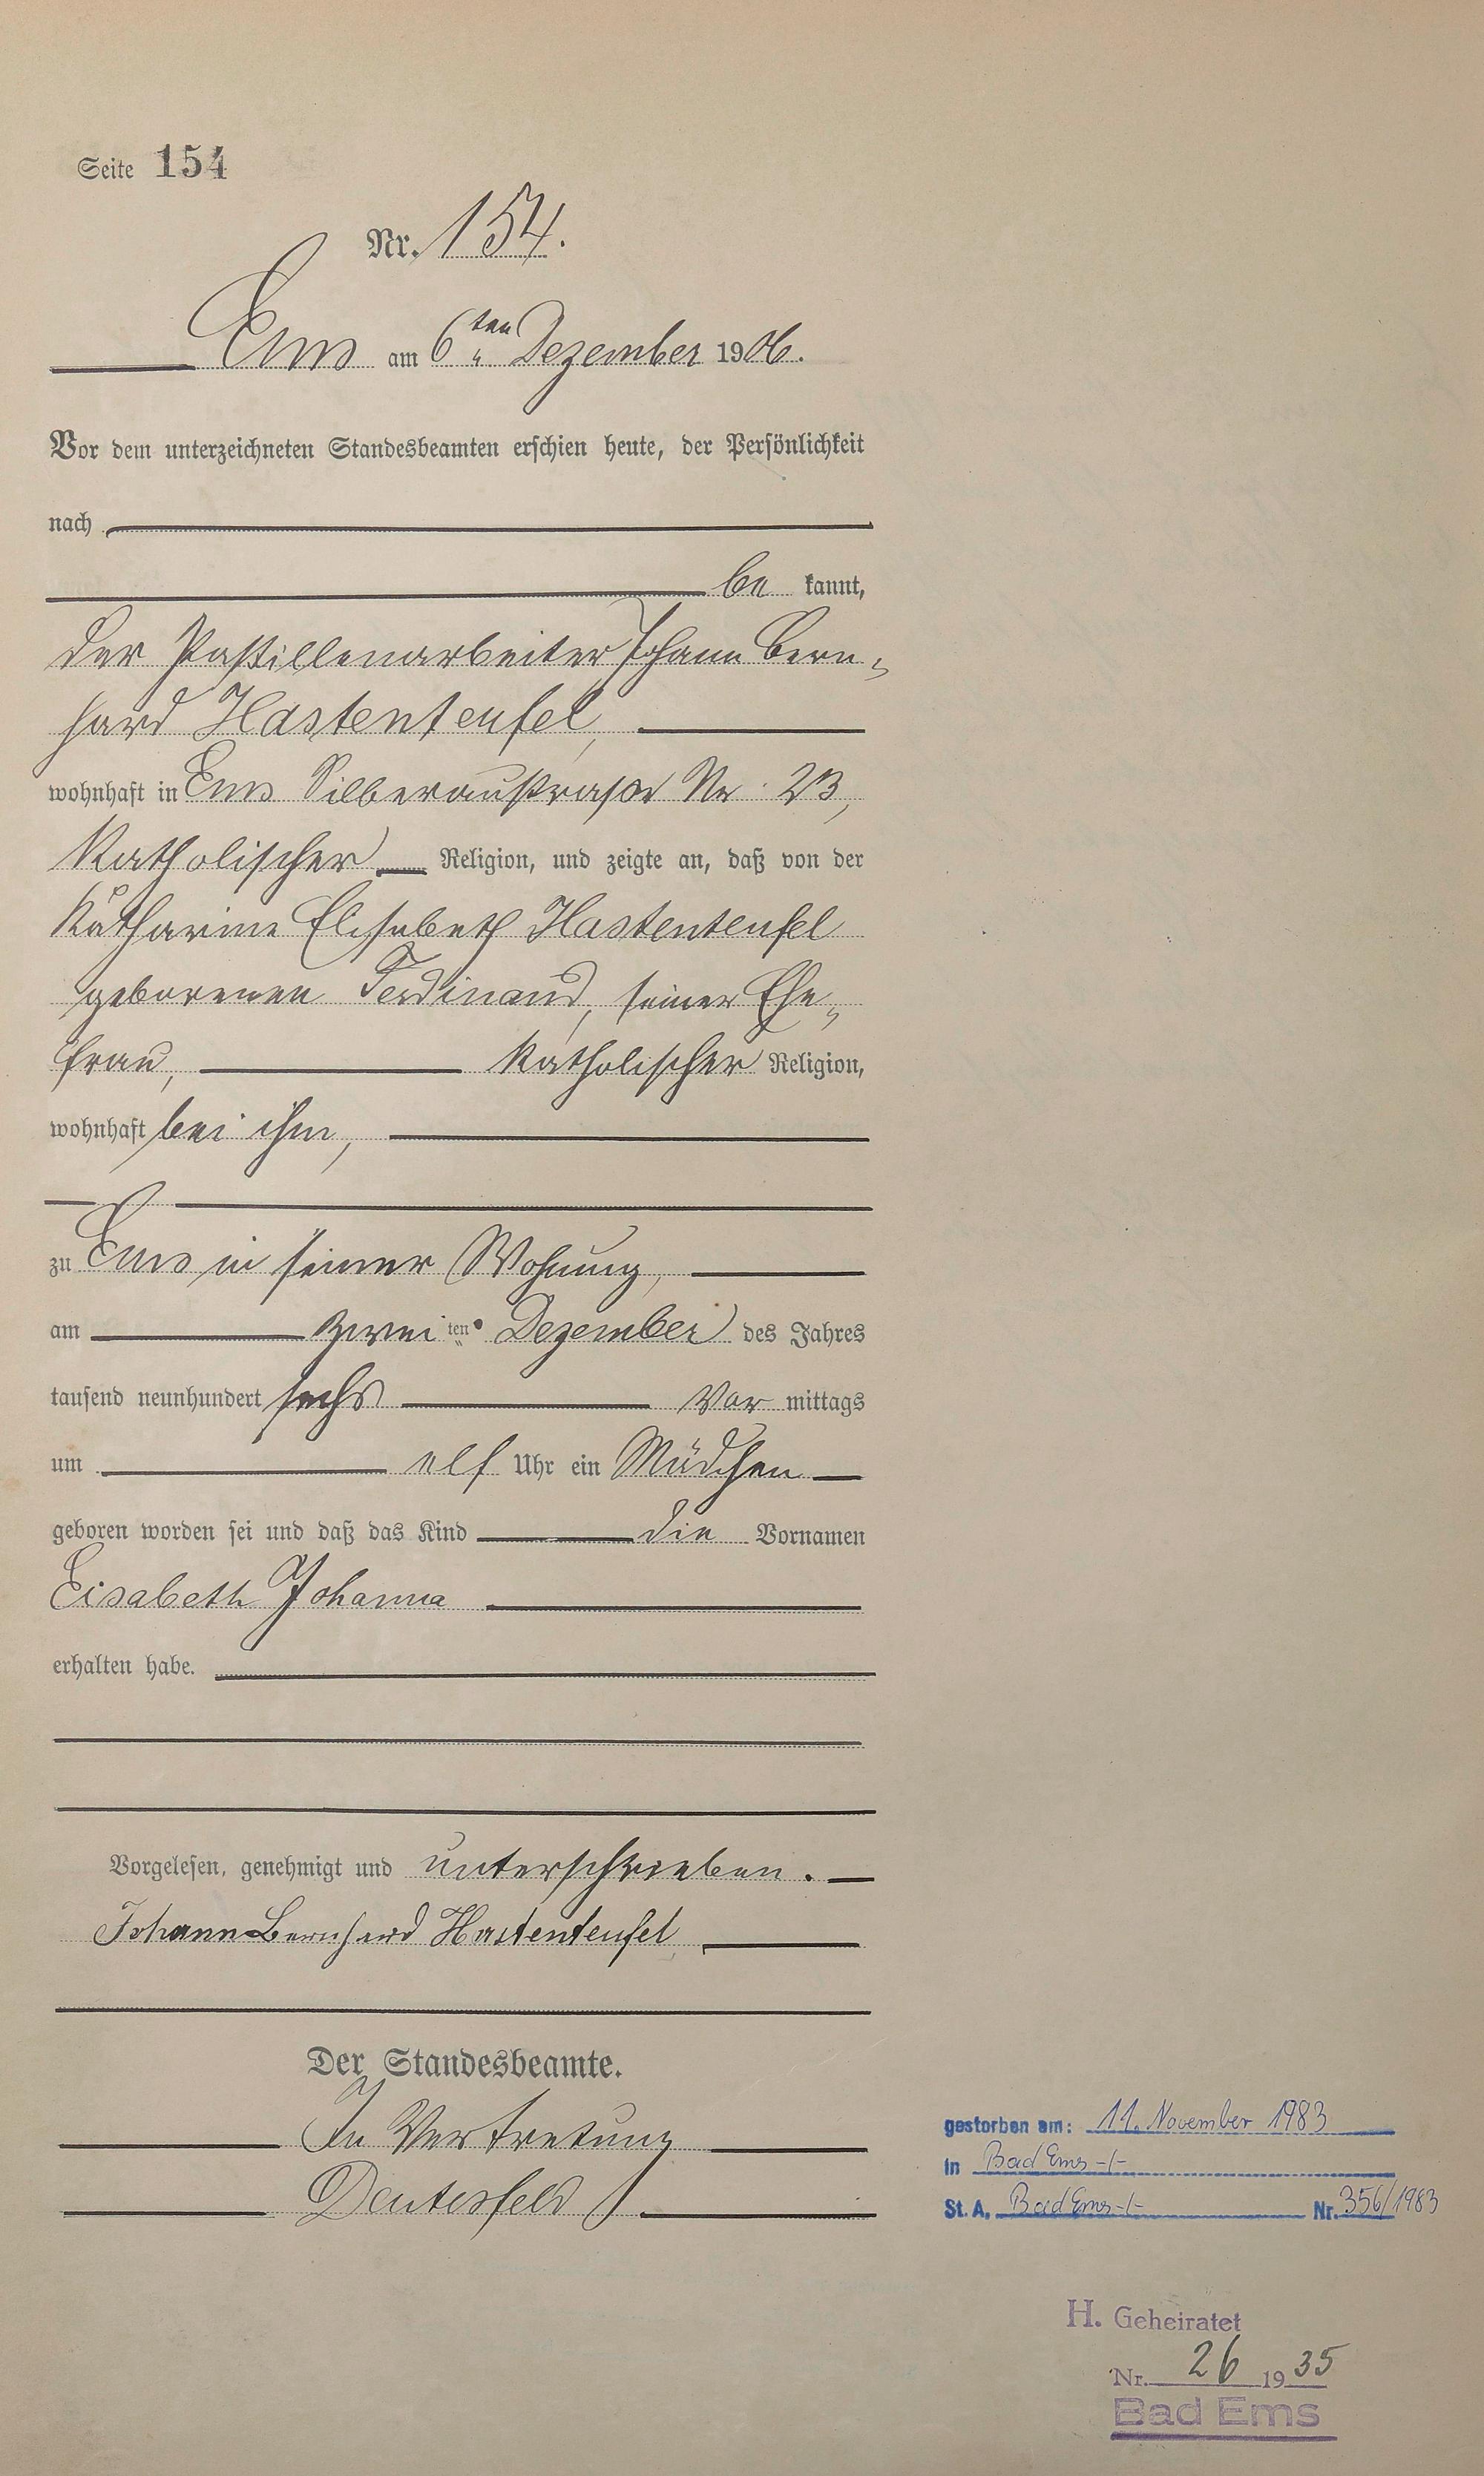 Seite 154
Nr. 154.
Ems am 6ten Dezember 1906.
Vor dem unterzeichneten Standesbeamten erschien heute, der Persönlichkeit
nach
be kannt,
der Pastillenarbeiter Johann Bern-
hard Hastenteufel,
wohnhaft in Ems Silberaustraße Nr. 23,
katholischer Religion, und zeigte an, daß von der
Katharine Elisabeth Hastenteufel
geborenen Ferdinand, seiner Ehe-
frau, katholischer Religion,
wohnhaft bei ihm,
zu Ems in seiner Wohnung,
am zwei ten Dezember des Jahres
tausend neunhundert sechs Vor mittags
um elf Uhr ein Mädchen
geboren worden sei und daß das Kind die Vornamen
Eisabeth Johanna
erhalten habe.
Vorgelesen, genehmigt und unterschrieben.
Johann Bernhard Hastenteufel
Der Standesbeamte.
In Vertretung
Deutesfeld
gestorben am: 11. November 1983
in Bad Ems -/-
St. A. Bad Ems -/- Nr. 356/1983
H. Geheiratet
Nr. 26 1935
Bad Ems